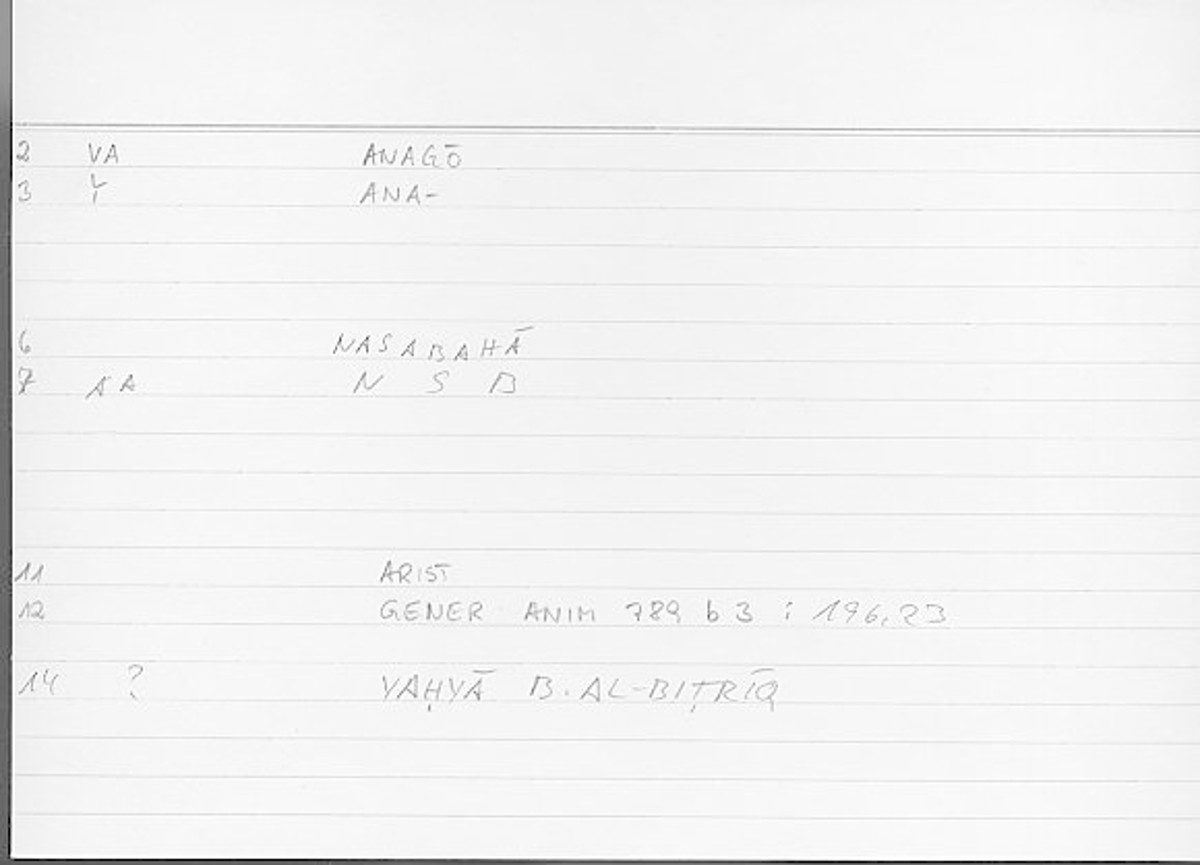 2 VA ANAGŌ
3 Y ANA-
6 NASABAHĀ
7 AA N S B
11 ARIST
12 GENER ANIM 789 b 3 ; 196,23
14 ? YAḤYĀ B. AL-BIṬRĪQ